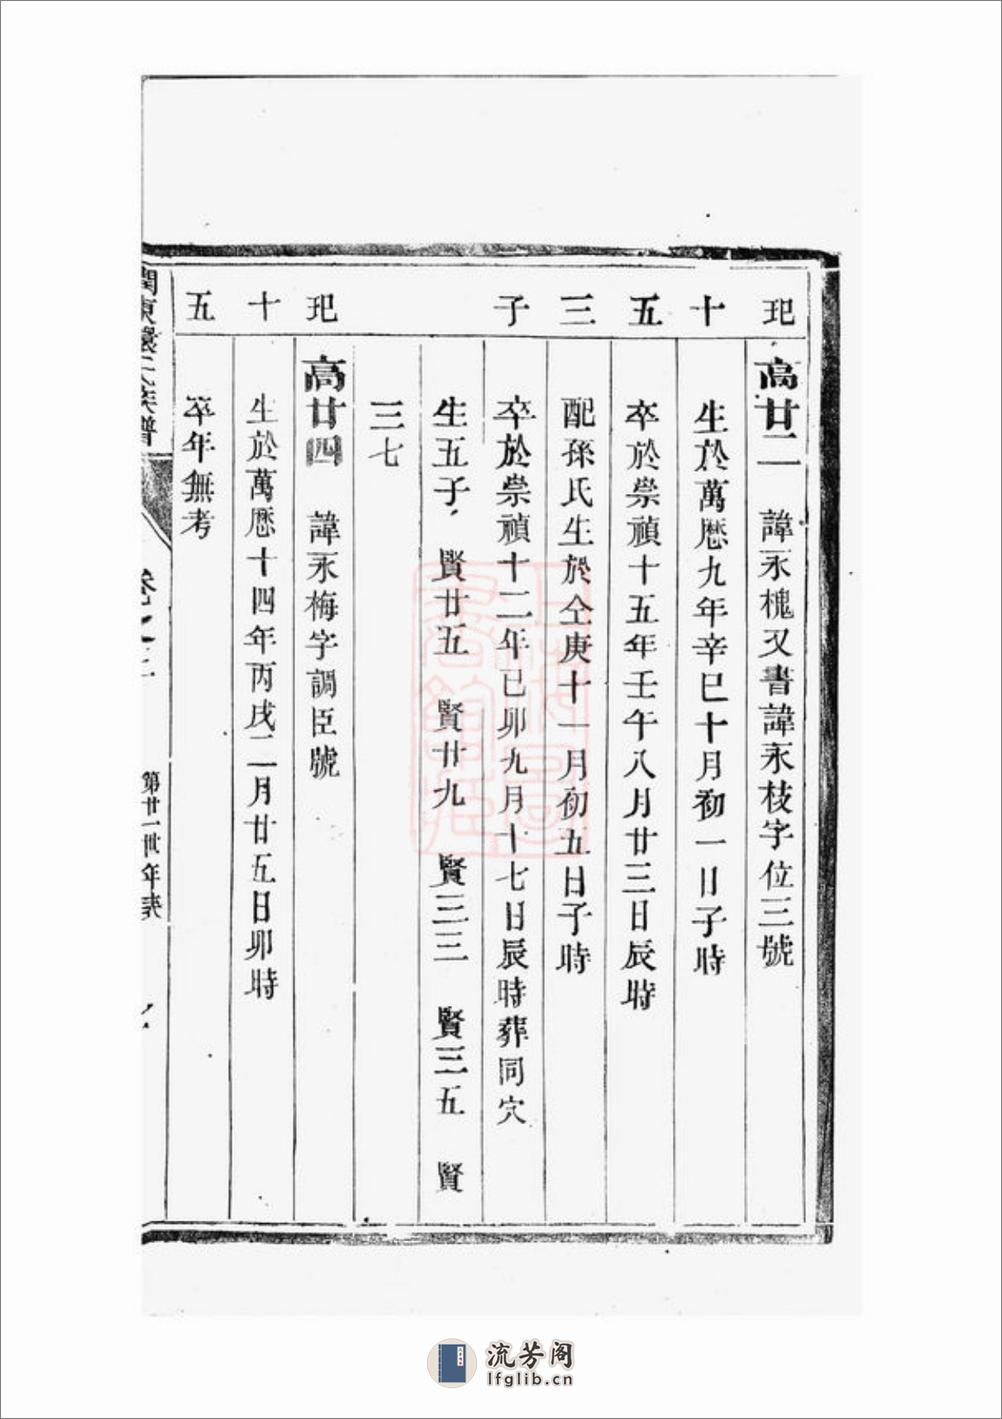 玘十五三子
高廿二　諱永槐又書諱永枝字位三號
生於萬厯九年辛巳十月初一日子時
卒於崇禎十五年壬午八月廿三日辰時
配孫氏生於仝庚十一月初五日子時
卒於崇禎十二年己卯九月十七日辰時葬同穴
生五子　賢廿五　賢廿九　賢三三　賢三五　賢
三七
玘十五
高廿四　諱永梅字調臣號
生於萬厯十四年丙戌二月廿五日卯時
卒年無考
東 氏族譜
卷之
第廿一世年表
流芳阁
lfglib.cn